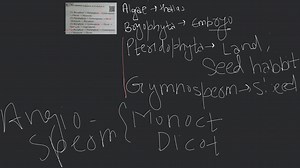 Algae → thallus
Bryophyta → Embryo
Pteridophyta → Land,
Seed habbt
Gymnosperm → Seed
Angio-
Sperm { Monoct
Dicot